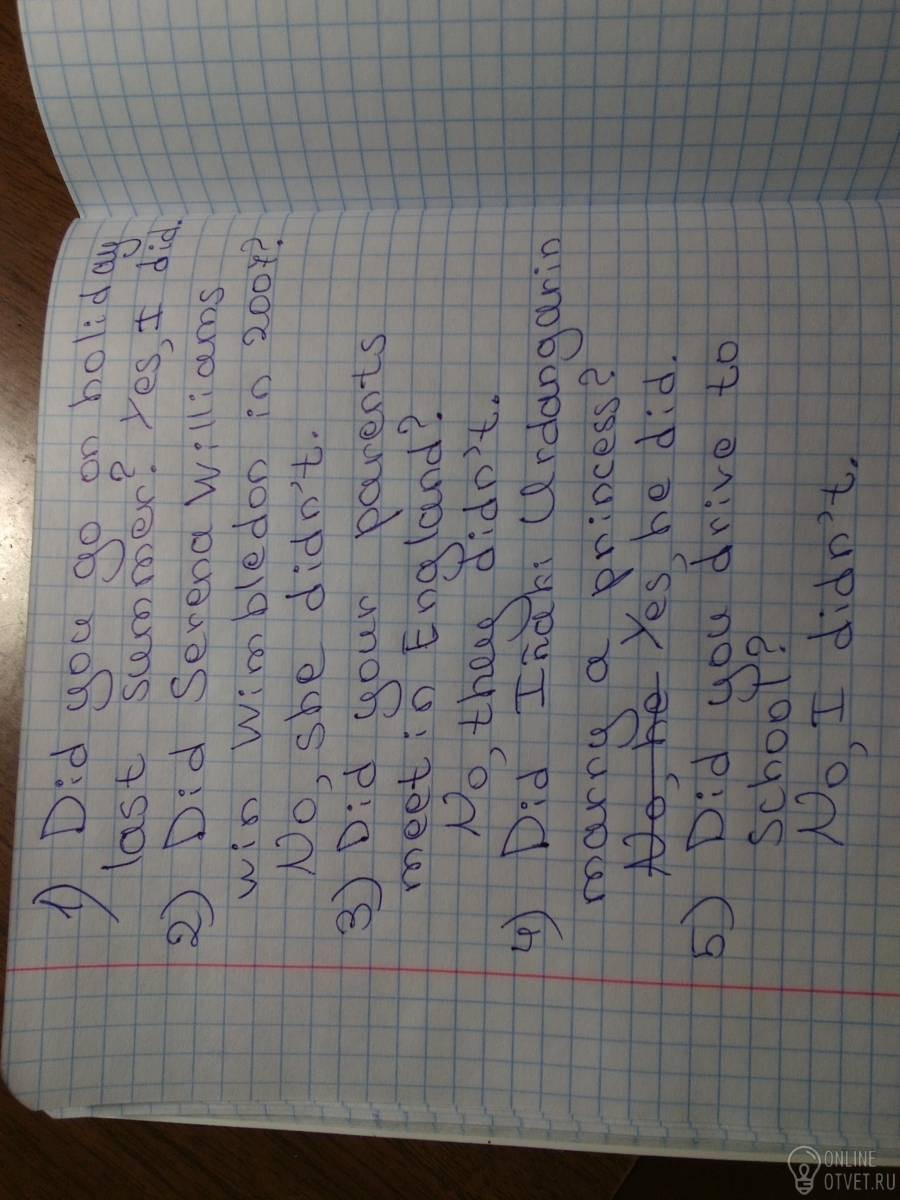 1) Did you go on holiday
last summer? Yes, I did.
2) Did Serena Williams
win wimbledon in 2007?
No, she didn't.
3) Did your parents
meet in England?
No, they didn't.
4) Did Iñaki Urdangarin
marry a princess?
No, he Yes, he did.
5) Did you drive to
school?
No, I didn't.
ONLINE
OTVET.RU